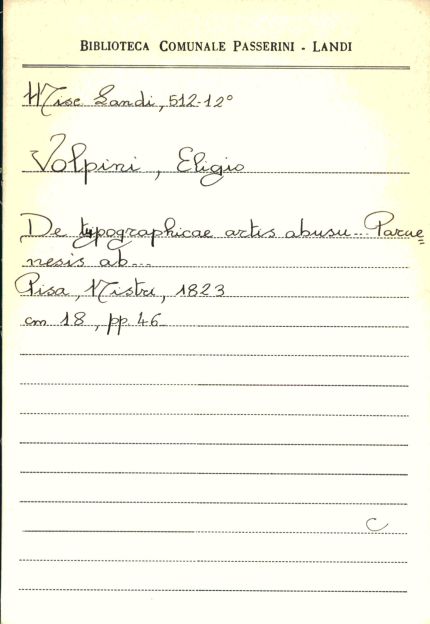 BIBLIOTECA COMUNALE PASSERINI - LANDI
Misc Landi, 512-12°
Volpini, Eligio
De typographicae artis abusu... Parae=
nesis ab...
Pisa, Nistri, 1823
cm 18, pp. 46
C